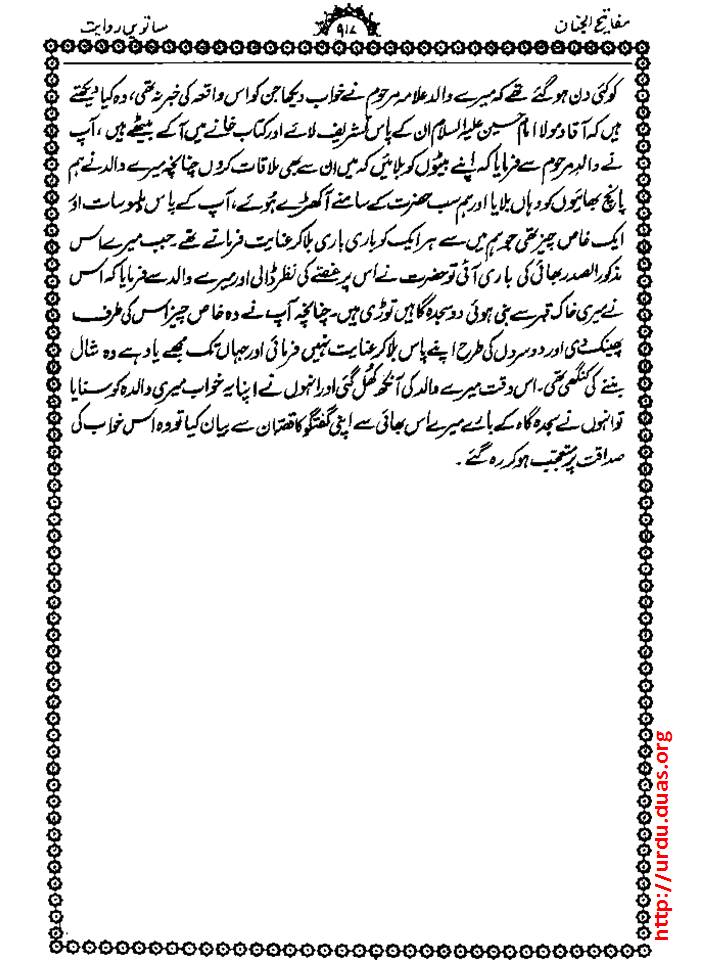 مفاتیح الجنان
۹۱۷
ساتویں روایت
کو کئی دن ہو گئے تھے کہ میرے والد علامہ مرحوم نے خواب دیکھا جن کو اس واقعہ کی خبر نہ تھی، وہ کیا دیکھتے
ہیں کہ آقا و مولا امام حسین علیہ السلام ان کے پاس تشریف لائے اور کتاب خانے میں آکے بیٹھے ہیں، آپ
نے والد مرحوم سے فرمایا کہ اپنے بیٹوں کو بلائیں کہ میں ان سے بھی ملاقات کروں چنانچہ میرے والد نے ہم
پانچ بھائیوں کو وہاں بلایا اور ہم سب حضرت کے سامنے آکھڑے ہوئے، آپ کے پاس ملبوسات اور
ایک خاص چیز تھی جو ہم میں سے ہر ایک کو باری باری بلا کر عنایت فرماتے تھے جب میرے اس
مذکور الصدر بھائی کی باری آئی تو حضرت نے اس پر غصے کی نظر ڈالی اور میرے والد سے فرمایا کہ اس
نے میری خاک قبر سے بنی ہوئی دو سجدہ گاہیں توڑی ہیں۔ چنانچہ آپ نے وہ خاص چیز اس کی طرف
پھینک دی اور دوسروں کی طرح اپنے پاس بلا کر عنایت نہیں فرمائی اور جہاں تک مجھے یاد ہے وہ شال
بننے کی کنگھی تھی۔ اس وقت میرے والد کی آنکھ کھل گئی اور انہوں نے اپنا یہ خواب میری والدہ کو سنایا
تو انہوں نے سجدہ گاہ کے بارے میرے اس بھائی سے اپنی گفتگو کا قصہ ان سے بیان کیا تو وہ اس خواب کی
صداقت پر متعجب ہو کر رہ گئے۔
http://urdu.duas.org